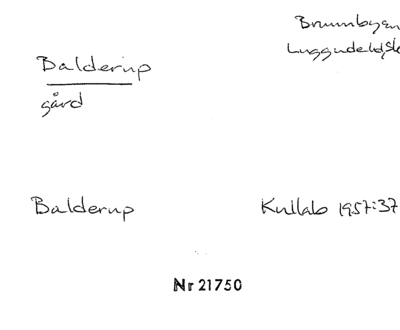 Balderup
gård
Balderup
Kullab 1957:37
Nr 21750